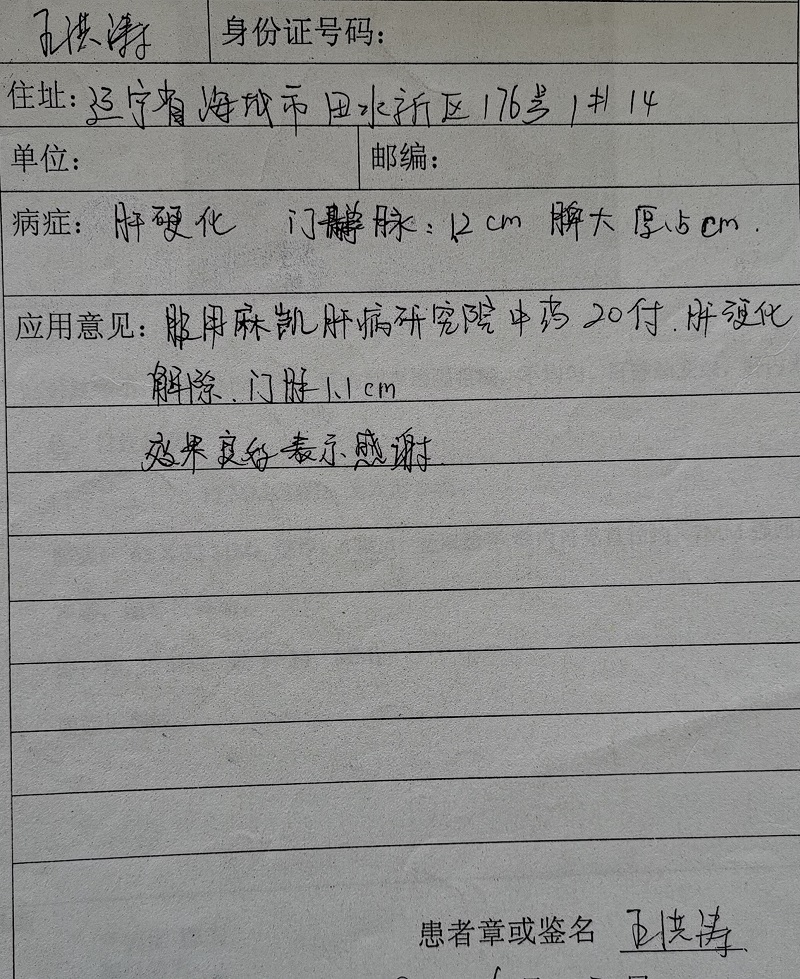 王洪涛 身份证号码：
住址：辽宁省海城市田水新区176号1#14
单位： 邮编：
病症：肝硬化 门静脉：1.2cm 脾大 厚1.5cm.
应用意见：服用麻凯肝病研究院中药20付.肝硬化
解除.门脉1.1cm
效果良好表示感谢.
患者章或鉴名 王洪涛